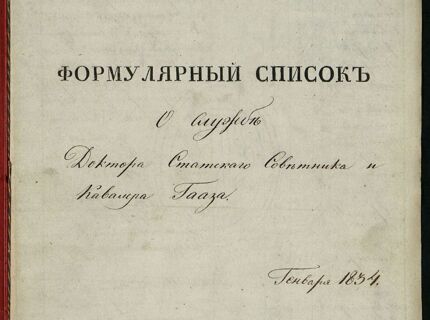 ФОРМУЛЯРНЫЙ СПИСОКЪ
О службѣ
Доктора Статскаго Совѣтника и
Кавалера Гааза.
Генваря 1834.